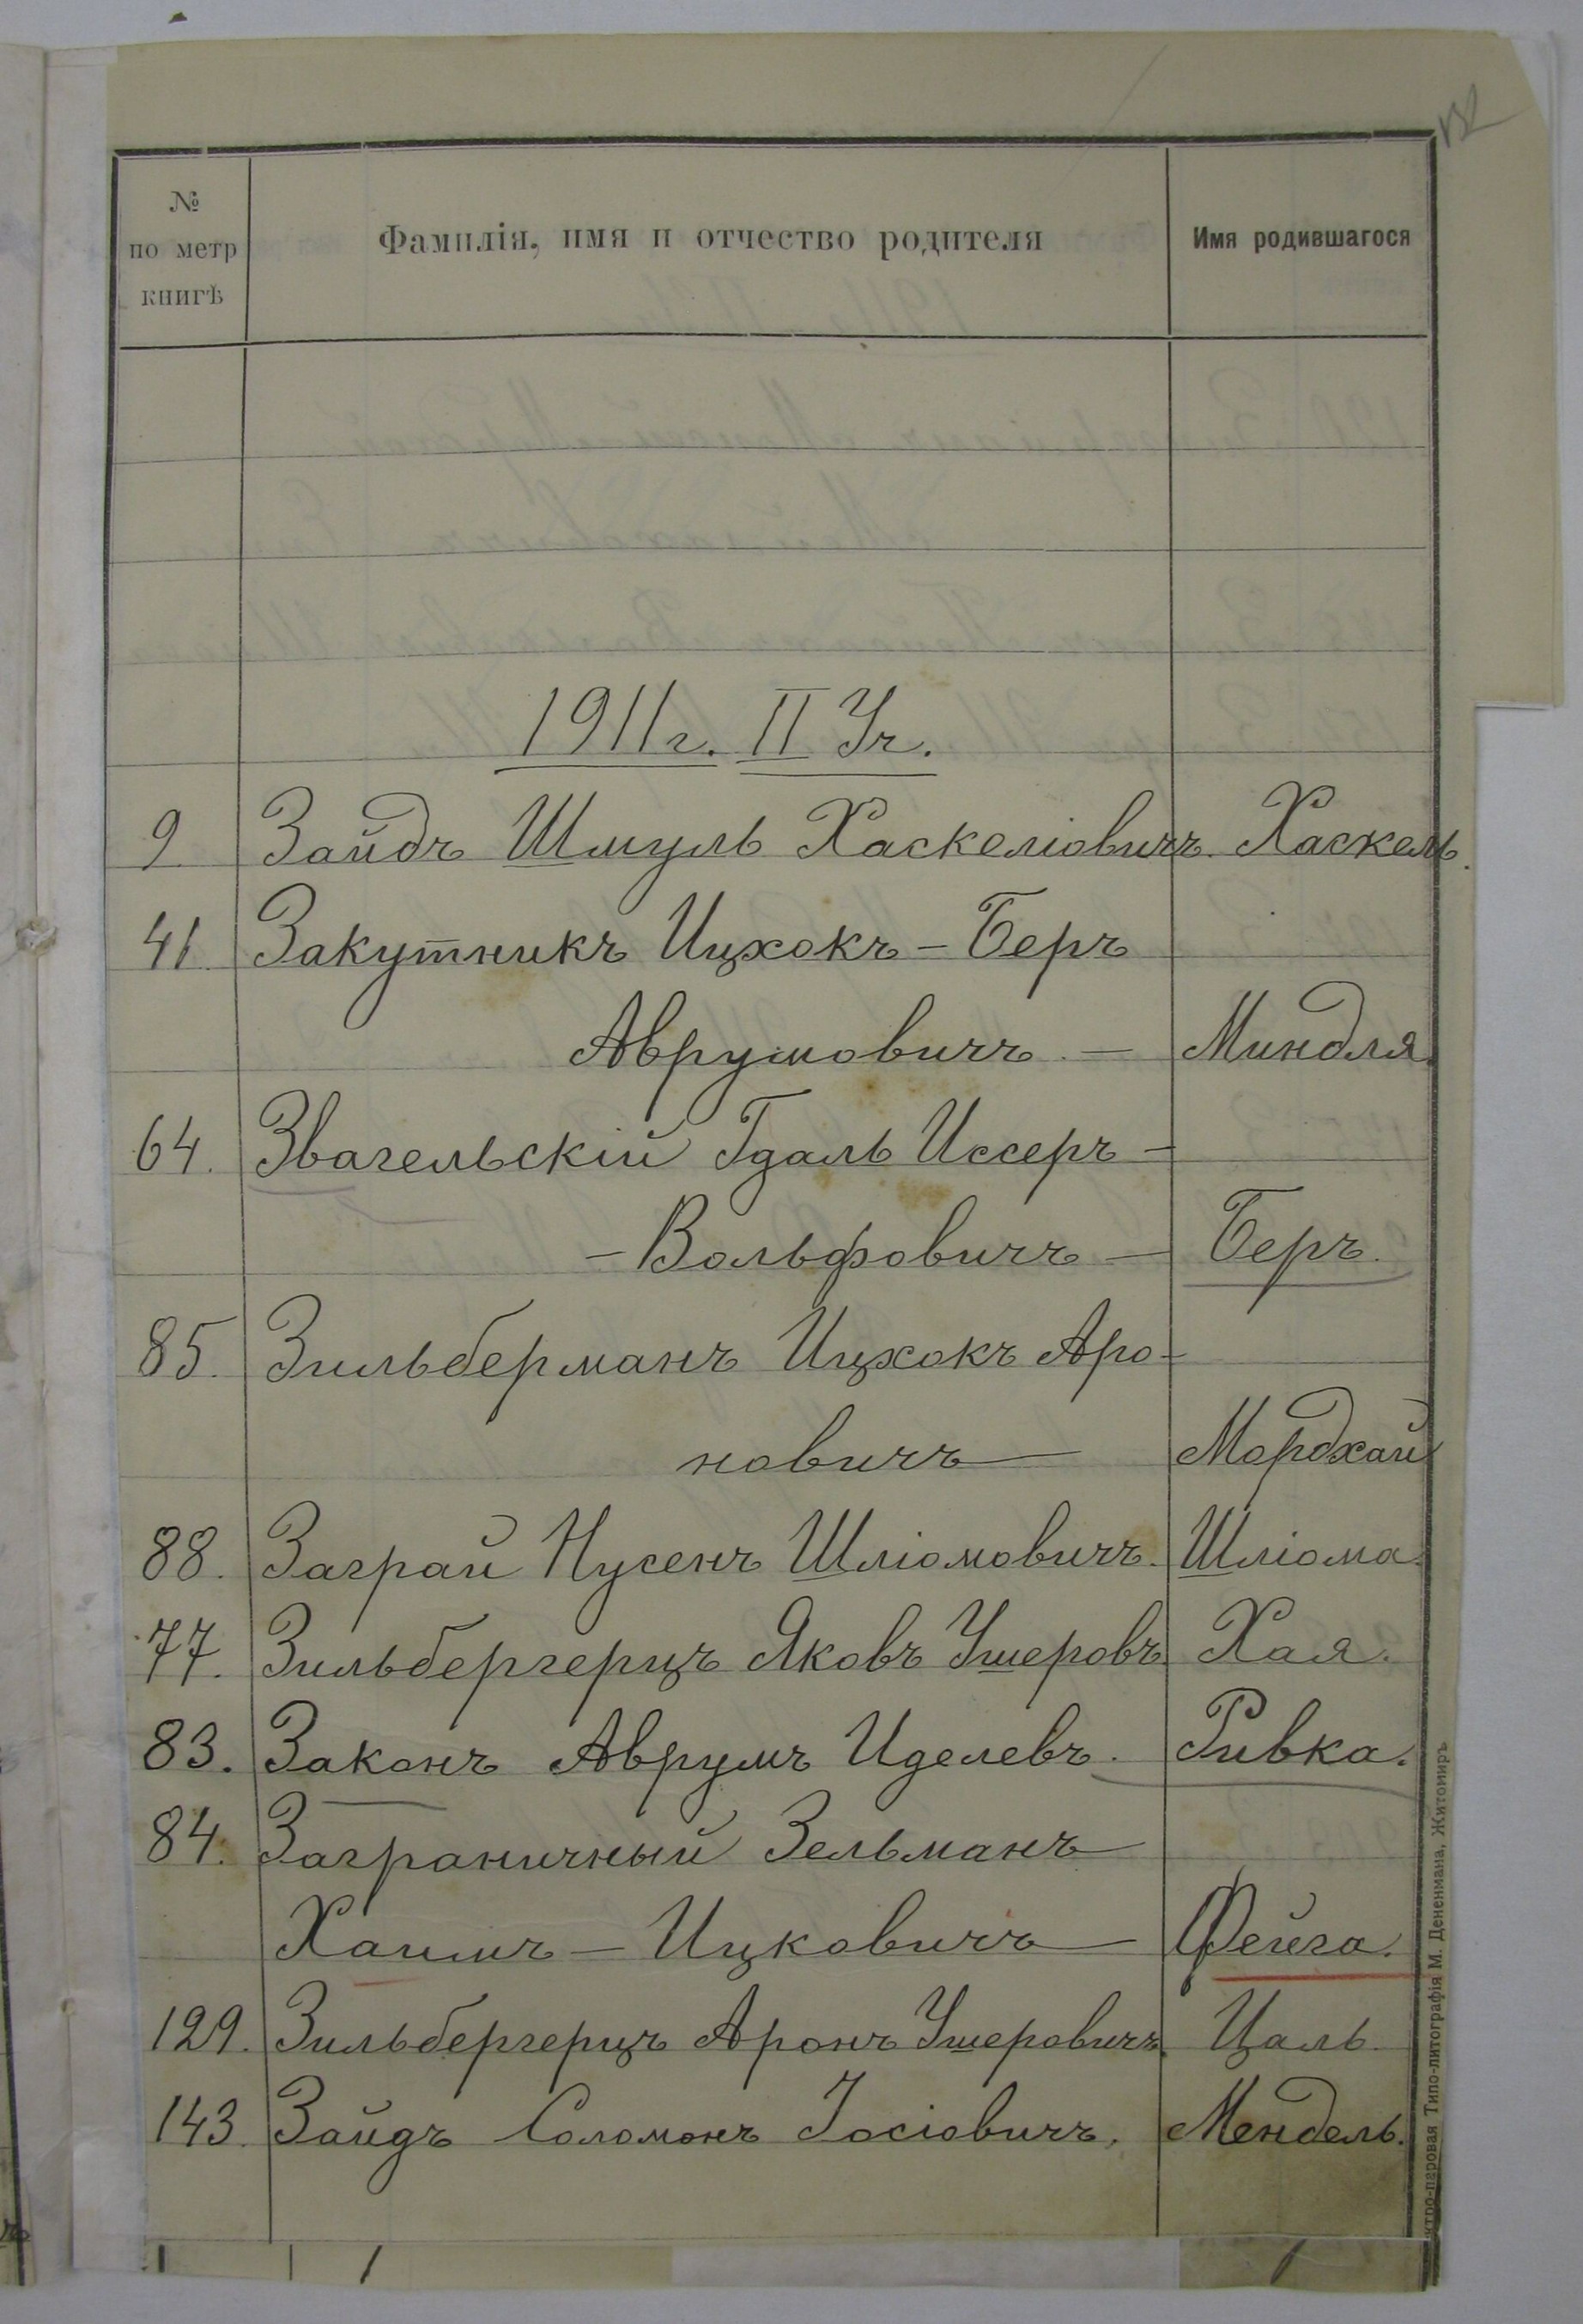 №
по метр
книгѣ
Фамилія, имя и отчество родителя
Имя родившагося
1911 г. II Уч.
9 Зайдъ Шмуль Хаскеліовичъ. Хаскель.
41. Закутникъ Ицхокъ - Беръ
Аврумовичъ. — Миндля.
64. Звагельскій Гдаль Иссеръ -
- Вольфовичъ — Беръ.
85. Зильберманъ Ицхокъ Аро-
новичъ — Мордхай
88. Заграй Нусенъ Шліомовичъ. Шліома.
77. Зильбергерцъ Яковъ Ушеровъ. Хая.
83. Законъ Аврумъ Иделевъ. Ривка.
84. Заграничный Зельманъ
Хаимъ - Ицковичъ — Фейга.
129. Зильбергерцъ Аронъ Ушеровичъ. Цаль.
143. Зайдъ Соломонъ Іосіовичъ. Мендель.
ктро-паровая Типо-литографія М. Дененмана, Житомиръ